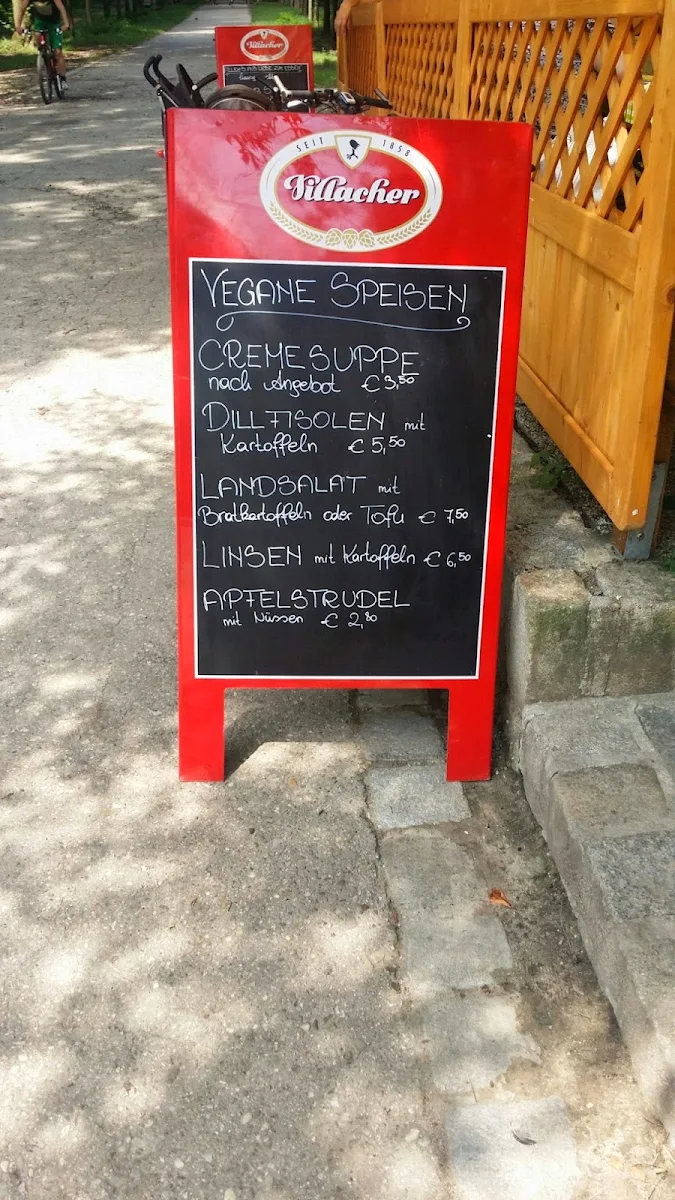 Villacher
SEIT 1858
Villacher
VEGANE SPEISEN
CREMESUPPE
nach Angebot € 3,50
DILLFISOLEN mit
Kartoffeln € 5,50
LANDSALAT mit
Bratkartoffeln oder Tofu € 7,50
LINSEN mit Kartoffeln € 6,50
APFELSTRUDEL
mit Nüssen € 2,80